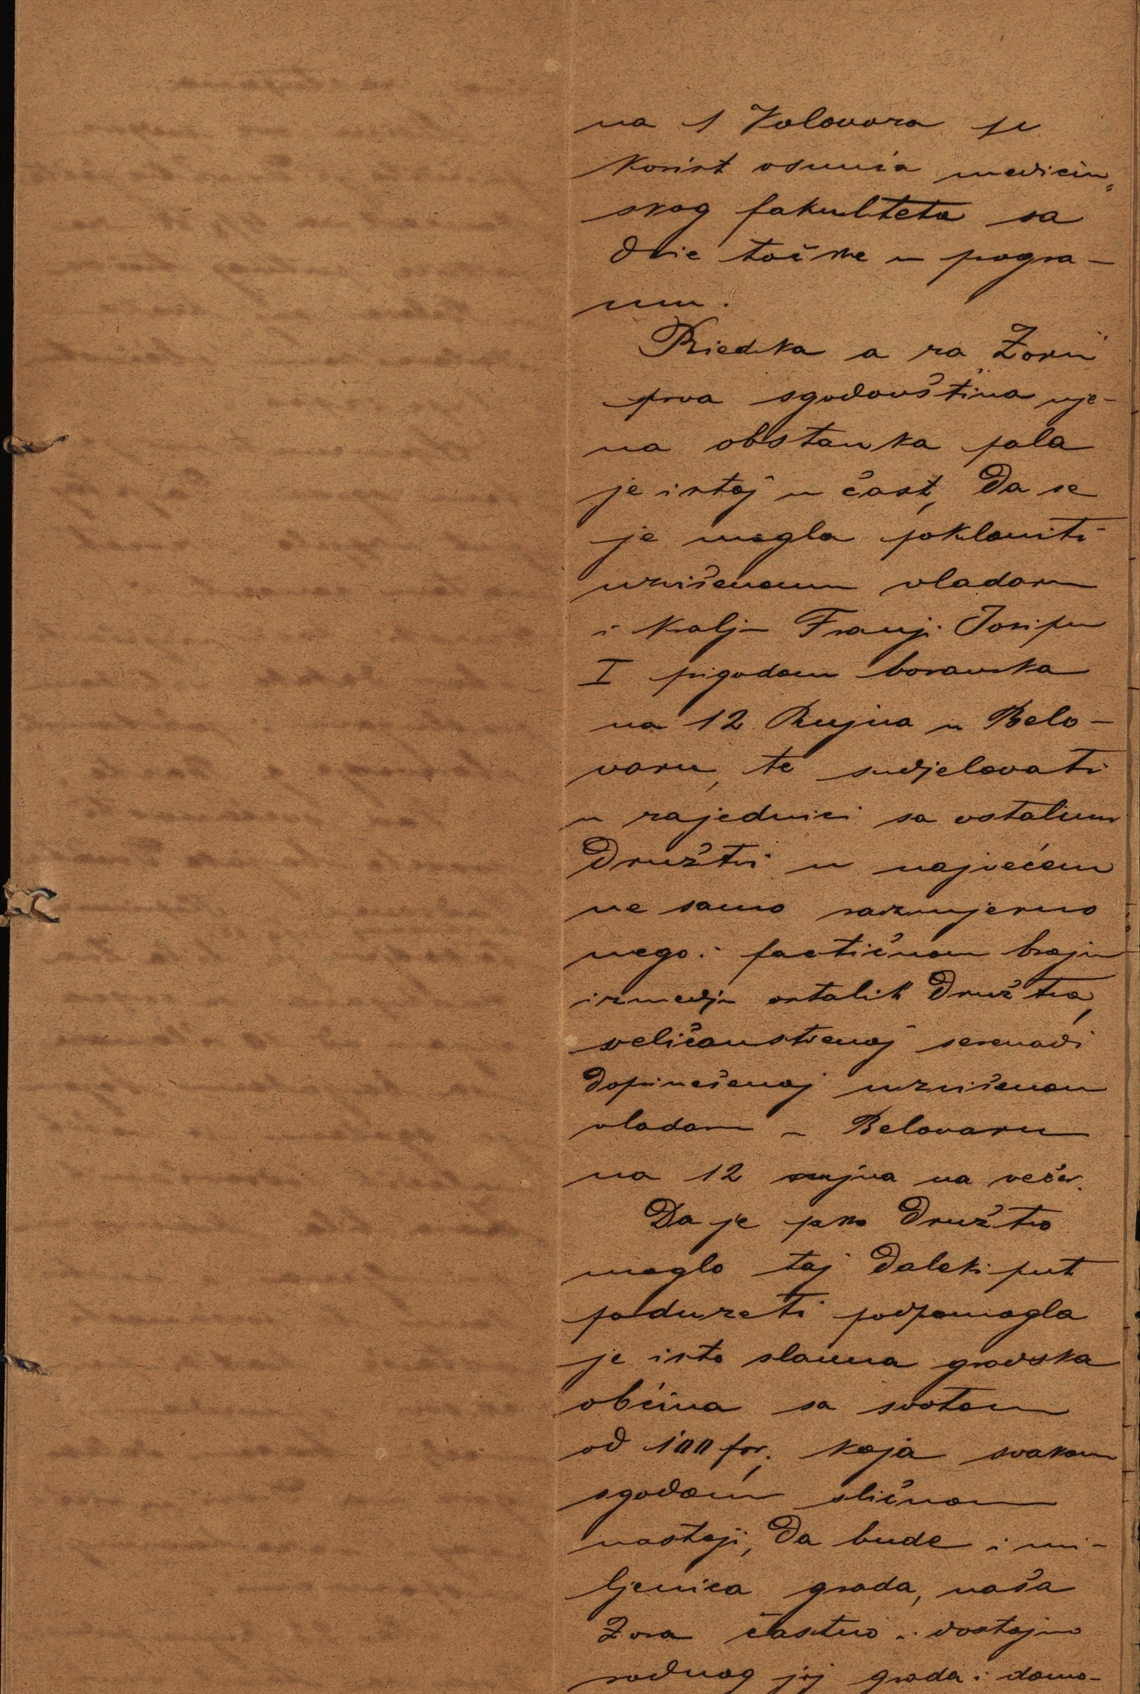 na 1 Kolovoza je
korist osnuća medicin„
skog fakulteta sa
dvie točke u progra-
mu.
Riedka a za Zoru
prva sgodovština nje-
na obstanka pala
je istoj u čast, da se
je mogla pokloniti
uzvišenomu vladaru
i kralju Franji Josipu
I prigodom boravka
na 12 Rujna u Belo-
varu, te sudjelovati
u zajednici sa ostalimi
Družtvi u najvećem
ne samo razmjerno
nego i factičnom broju
izmedju ostalih Družtva,
veličanstvenoj serenadi
doprinešenoj uzvišenom
vladaru u Belovaru
na 12 rujna na večer.
Da je pako Družtvo
moglo taj daleki put
poduzeti podpomogla
je isto slavna gradska
obćina sa svotom
od 100 for, koja svakom
sgodom sličnom
nastoji, da bude i mi-
ljenica grada, naša
Zora častno i dostojno
rodnog joj grada i domo-